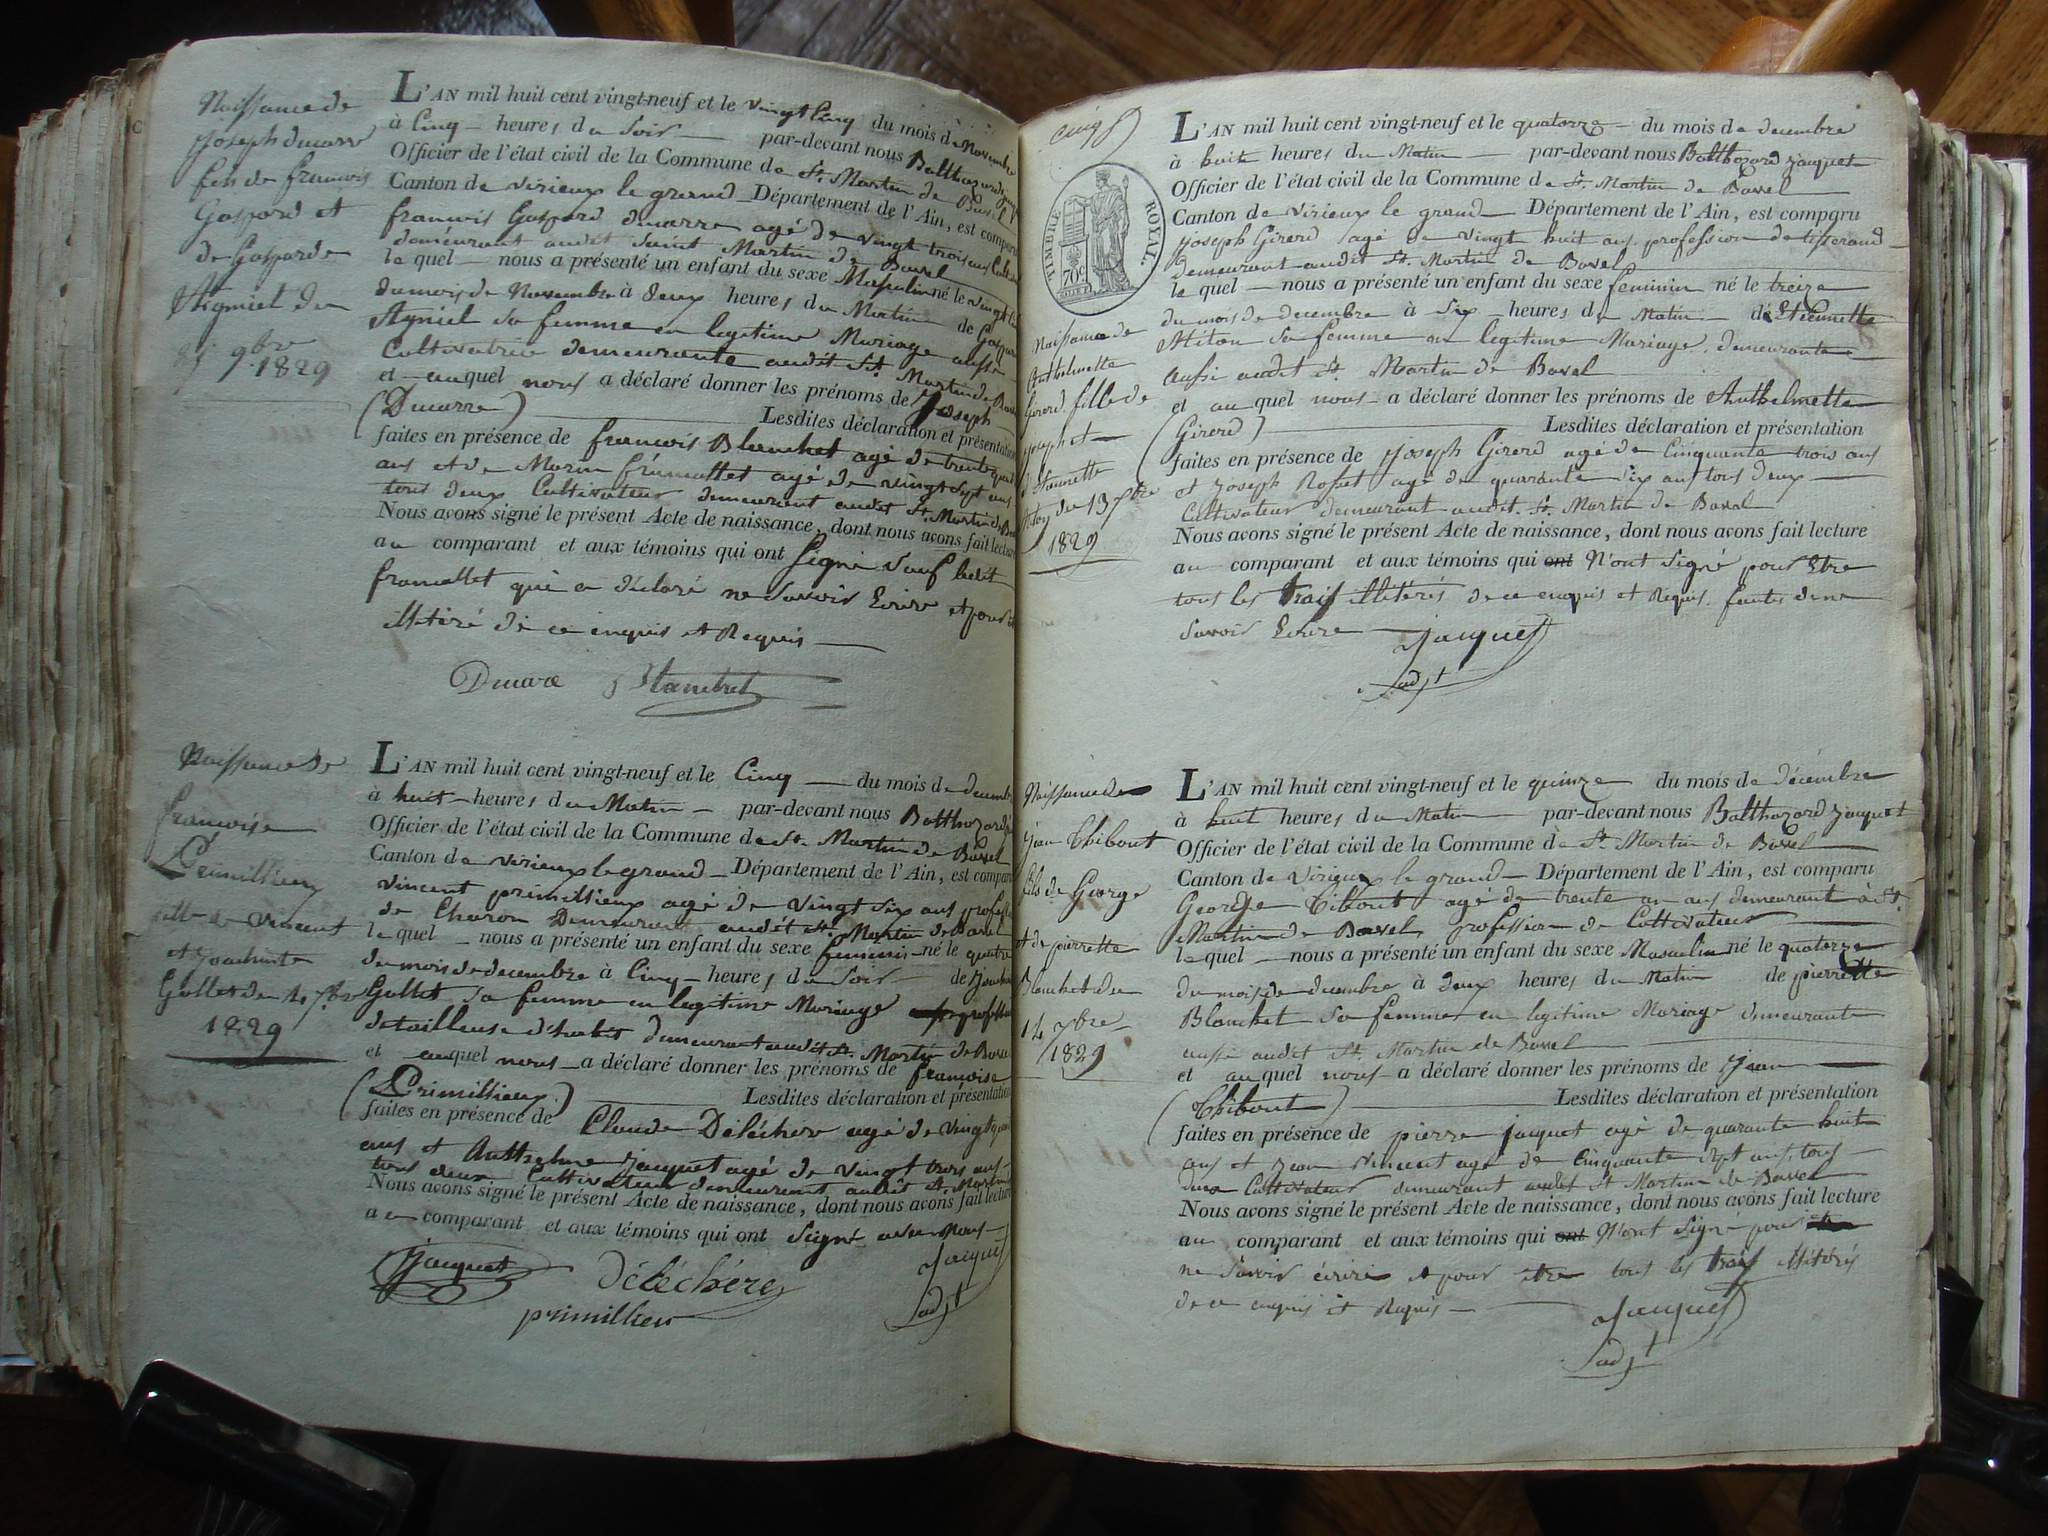 Naissance de
Joseph ducarre
fils de francois
Gaspard et
de Gasparde
Aigniel du
25 9bre
1829
L'AN mil huit cent vingt-neuf et le vingt Cinq du mois de Novembre
à Cinq heures du Soir par-devant nous Balthazard
Officier de l'état civil de la Commune de St. Martin de Bavel
Canton de virieux le grand Département de l'Ain, est comparu
francois Gaspard ducarre agé de vingt trois ans
demeurant audit Saint Martin de Bavel
le quel nous a présenté un enfant du sexe Masculin né le vingt
du mois de Novembre à deux heures du Matin de
Aigniel sa femme en legitime Mariage aussi
Cultivatrice demeurante audit St. Martin de
et auquel nous a déclaré donner les prénoms de Joseph
(Ducarre) Lesdites déclaration et présentation
faites en présence de francois Blanchet agé de trente
ans et de Marin framottet agé de vingt Sept ans
tous deux Cultivateur demeurant audit St. Martin de
Nous avons signé le présent Acte de naissance, dont nous avons fait lecture
au comparant et aux témoins qui ont Signé Sauf ledit
framottet qui a déclaré ne Savoir Ecrire et pour
illetéré de ce enquis et Requis
Ducare Blanchet
Naissance de
francoise
Primillieux
fille de vincent
et Joachinte
Gollet du 4 xbre
1829
L'AN mil huit cent vingt-neuf et le Cinq du mois de decembre
à huit heures du Matin par-devant nous Balthazard
Officier de l'état civil de la Commune de St. Martin de Bavel
Canton de virieux le grand Département de l'Ain, est comparu
vincent primillieux agé de vingt Six ans
de Charon Demeurant audit St. Martin de Bavel
le quel nous a présenté un enfant du sexe feminin né le quatre
du mois de decembre à Cinq heures du Soir de
Gollet sa femme en legitime Mariage
de tailleuse d'habit demeurant audit St. Martin de Bavel
et auquel nous a déclaré donner les prénoms de francoise
(Primillieux) Lesdites déclaration et présentation
faites en présence de Claude Deléchere agé de vingt
ans et Anthelme Jacquet agé de vingt trois ans
tous deux Cultivateur demeurant audit St. Martin
Nous avons signé le présent Acte de naissance, dont nous avons fait lecture
au comparant et aux témoins qui ont Signé avec Nous
Jacquet Déléchère Jacquet
primillieu adjt
cinq
TIMBRE ROYAL.
70c
Naissance de
Anthelmette
Girerd fille de
joseph et
d'Etiennette
du 13 xbre
1829
L'AN mil huit cent vingt-neuf et le quatorze du mois de decembre
à huit heures du Matin par-devant nous Balthazard Jacquet
Officier de l'état civil de la Commune de St. Martin de Bavel
Canton de virieux le grand Département de l'Ain, est comparu
Joseph Girerd agé de vingt huit ans profession de tisserand
demeurant audit St. Martin de Bavel
le quel nous a présenté un enfant du sexe feminin né le treize
du mois de decembre à Six heures du Matin d'Etiennette
sa femme en legitime Mariage demeurante
aussi audit St. Martin de Bavel
et au quel nous a déclaré donner les prénoms de Anthelmette
(Girerd) Lesdites déclaration et présentation
faites en présence de Joseph Girerd agé de Cinquante trois ans
et Joseph Rosset agé de quarante Six ans tous deux
Cultivateur demeurant audit St. Martin de Bavel
Nous avons signé le présent Acte de naissance, dont nous avons fait lecture
au comparant et aux témoins qui ont N'ont Signé pour Etre
tous les trois illetérés de ce enquis et Requis fautes de ne
Savoir Ecrire Jacquet
adjt
Naissance de
jean Thibout
fils de George
et de pierrette
Blanchet du
14 xbre
1829
L'AN mil huit cent vingt-neuf et le quinze du mois de décembre
à huit heures du Matin par-devant nous Balthazard Jacquet
Officier de l'état civil de la Commune de St. Martin de Bavel
Canton de Virieux le grand Département de l'Ain, est comparu
George Tibout agé de trente un ans demeurant à St.
Martin de Bavel profession de Cultivateur
le quel nous a présenté un enfant du sexe Masculin né le quatorze
du mois de decembre à deux heures du Matin de pierrette
Blanchet sa femme en legitime Mariage demeurante
aussi audit St. Martin de Bavel
et au quel nous a déclaré donner les prénoms de Jean
(Thibout) Lesdites déclaration et présentation
faites en présence de pierre jacquet agé de quarante huit
ans et Jean vincent agé de Cinquante Sept ans tous
deux Cultivateur demeurant audit St Martin de Bavel
Nous avons signé le présent Acte de naissance, dont nous avons fait lecture
au comparant et aux témoins qui ont N'ont Signé pour
ne Savoir écrire et pour etre tous les trois illitérés
de ce enquis et Requis
Jacquet
adjt